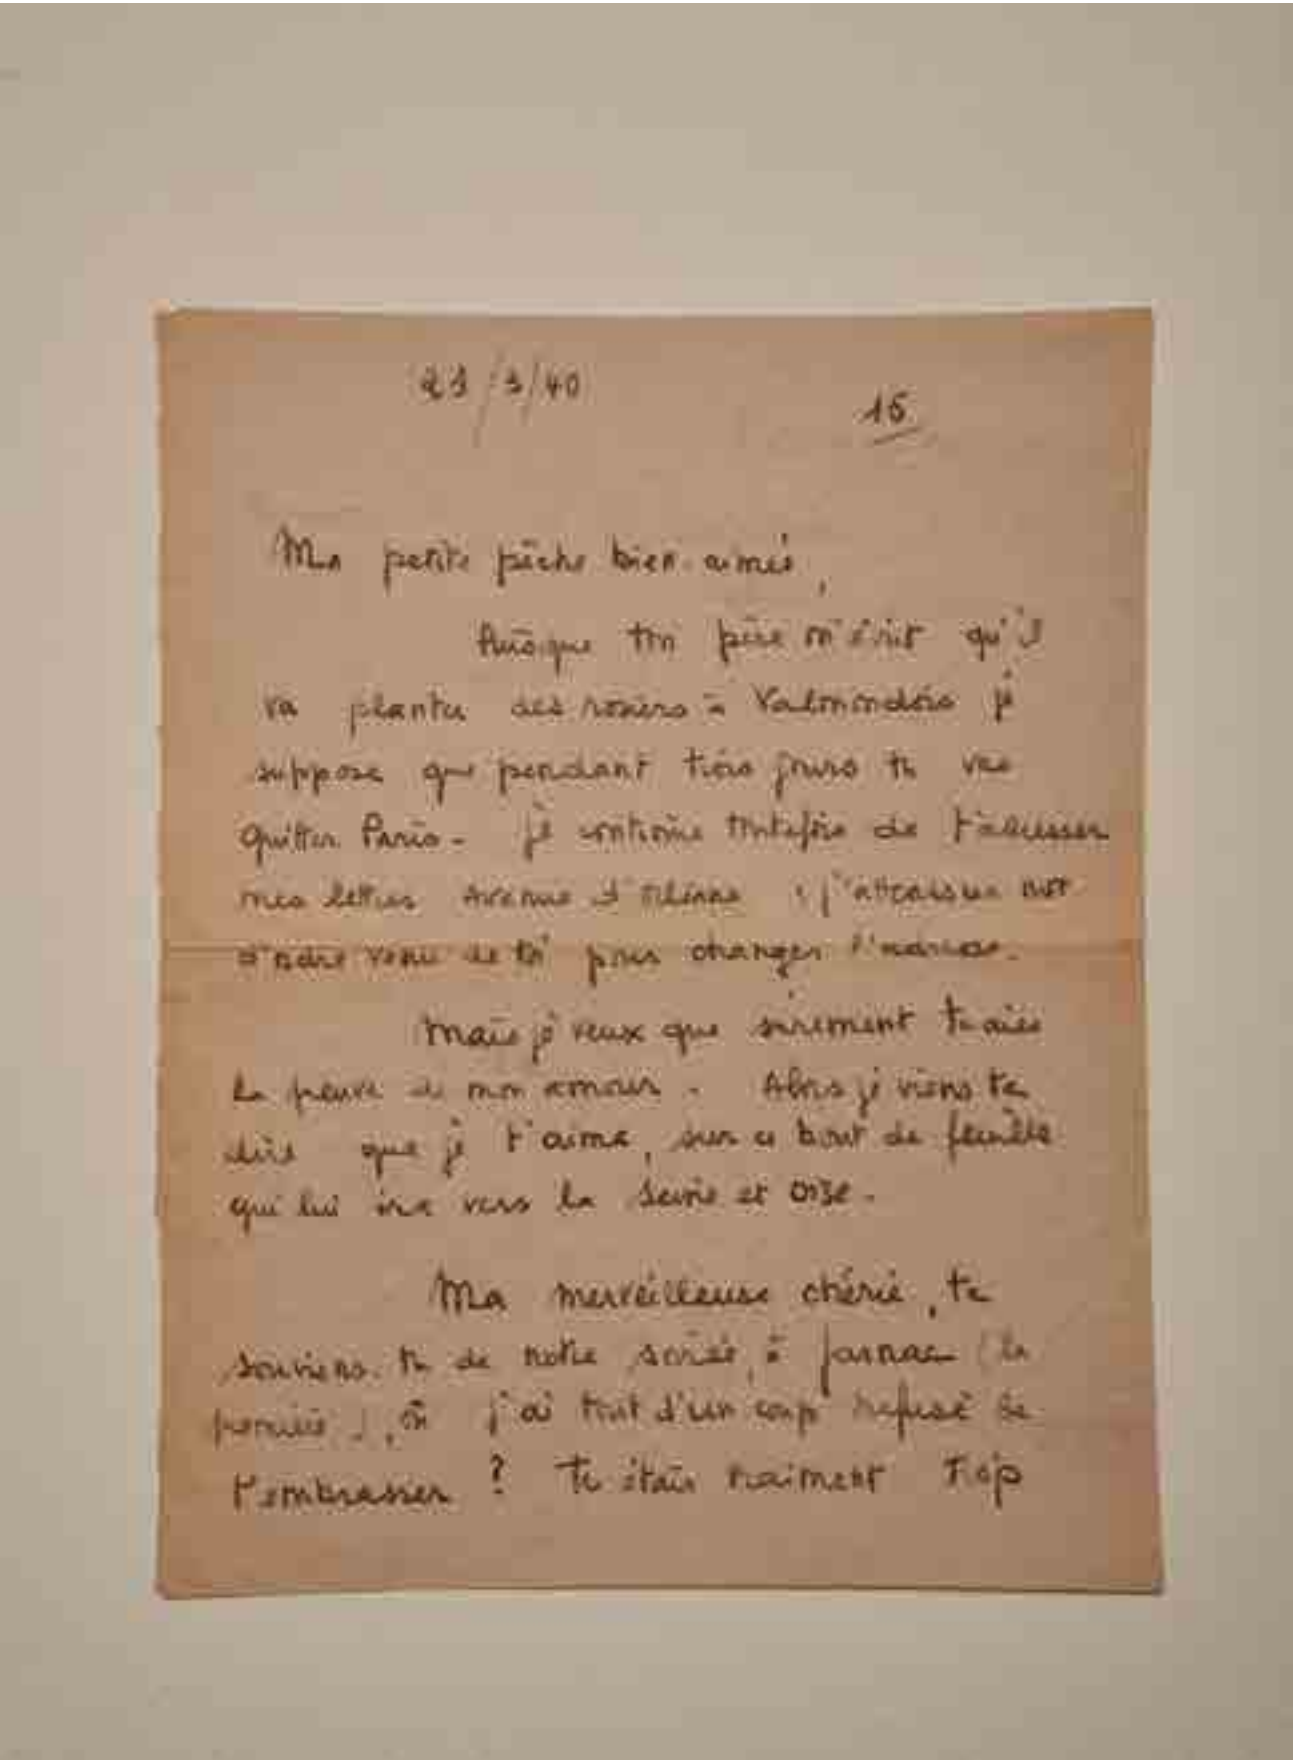 21/3/40
15
Ma petite pêche bien-aimée,
Puisque ton père m'écrit qu'il
va planter des rosiers à Valmondois je
suppose que pendant trois jours tu vas
quitter Paris - je continue toutefois de t'adresser
mes lettres Avenue d'Orléans : j'attends un mot
d'ordre venu de toi pour changer l'adresse.
Mais je veux que sûrement tu aies
la preuve de mon amour. Alors je viens te
dire que je t'aime, sur ce bout de feuille
qui lui ira vers la Seine et Oise.
Ma merveilleuse chérie, te
souviens-tu de notre soirée, à Jarnac (la
première), où j'ai tout d'un coup refusé de
t'embrasser ? Tu étais vraiment trop